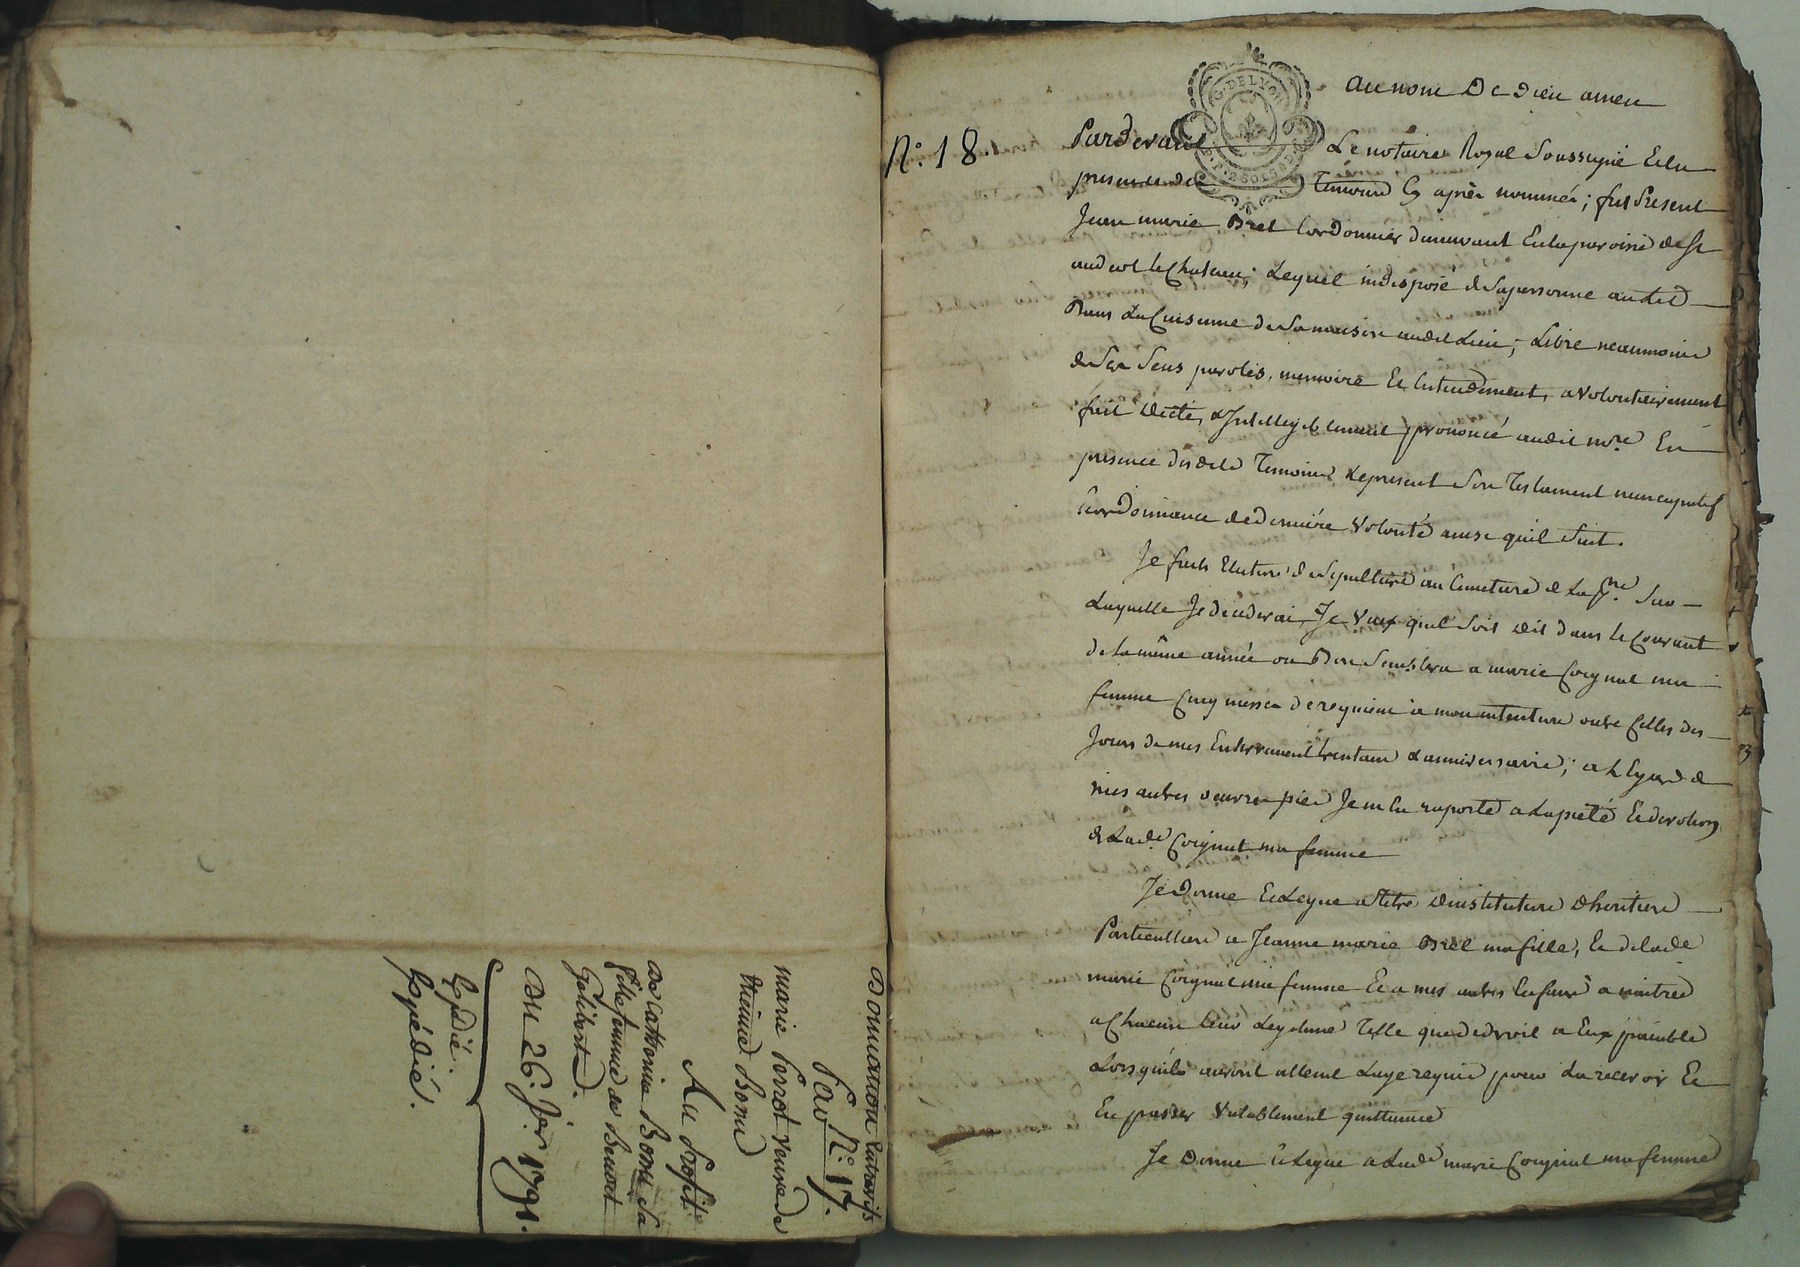 Donnation Entrevifs
Par N.° 17.
marie Perrot veuve de
Bonu
Au Profit
De Catherine Bonu sa
fille femme de Benoit
Galibert.
Du 26. Jer 1791.
Expédié.
Expédié.
N.° 18
G. DE LYON
au nom De Dieu amen
Pardevant Le notaire Royal Soussigné Et en
presence des Temoins Cy après nommés; fut Present
Jean marie Brel Cordonnier demeurant En la paroisse de St
andeol le Chateau; Lequel indisposé de Sa personne au Lit
Dans La Cuisinne de Sa maison audit Lieu; Libre neanmoins
de Ses Sens paroles, memoire Et Entendement, a Volontairement
fait dicté, & Intelligiblement prononcé audit nore En
presence desdits Temoins Le present Son Testament nuncupatif
& ordonnance de derniére Volonté ainsi qu'il Suit.
Je fais Election de Sepulture au Cimetiere de La pnse Sur
Laquelle Je decederai, Je Veux quil Soit dit dans le Courant
de la même année ou Bon Semblera a marie Coignat ma
femme Cinq messes de requiem a mon intention outre Celles des
Jours de mes Enterrement trentain & anniversaire; a L'Egard de
mes autres oeuvres pies Je m'en raporte a La pieté Et devotion
de Lade Coignat ma femme
Je Donne Et Legue a Titre D'institution D'heritiere
Particulliere a Jeanne marie Brel ma fille, Et de lade
marie Coignat ma femme Et a mes autres Enfans a naitre
a Chacun Leur Legitime Telle que de droit a Eux paiable
Lorsqu'ils auront atteint L'age requis pour La recevoir Et
En passer Valablement quittance
Je Donne & Legue a Lade marie Coignat ma femme